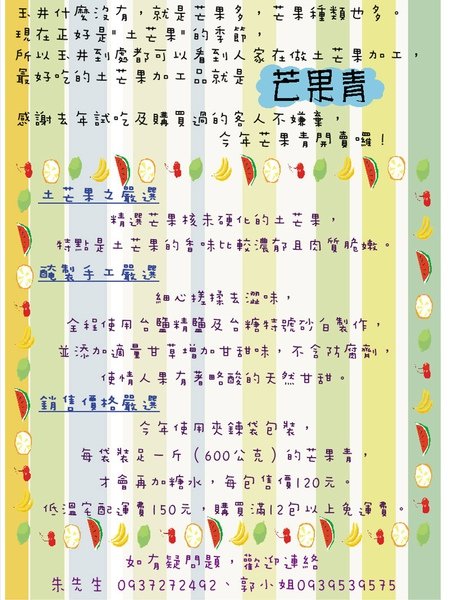 玉井什麼沒有，就是芒果多，芒果種類也多。
現在正好是"土芒果"的季節，
所以玉井到處都可以看到人家在做土芒果加工，
最好吃的土芒果加工品就是
芒果青
感謝去年試吃及購買過的客人不嫌棄，
今年芒果青開賣囉！
土芒果之嚴選
精選芒果核未硬化的土芒果，
特點是土芒果的香味比較濃郁且肉質脆嫩。
醃製手工嚴選
細心搓揉去澀味，
全程使用台鹽精鹽及台糖特號砂白製作，
並添加適量甘草增加甘甜味，不含防腐劑，
使情人果有著略酸的天然甘甜。
銷售價格嚴選
今年使用夾鍊袋包裝，
每袋裝足一斤（600公克）的芒果青，
才會再加糖水，每包售價120元。
低溫宅配運費150元，購買滿12包以上免運費。
如有疑問題，歡迎連絡
朱先生 0937272492、郭小姐0939539575